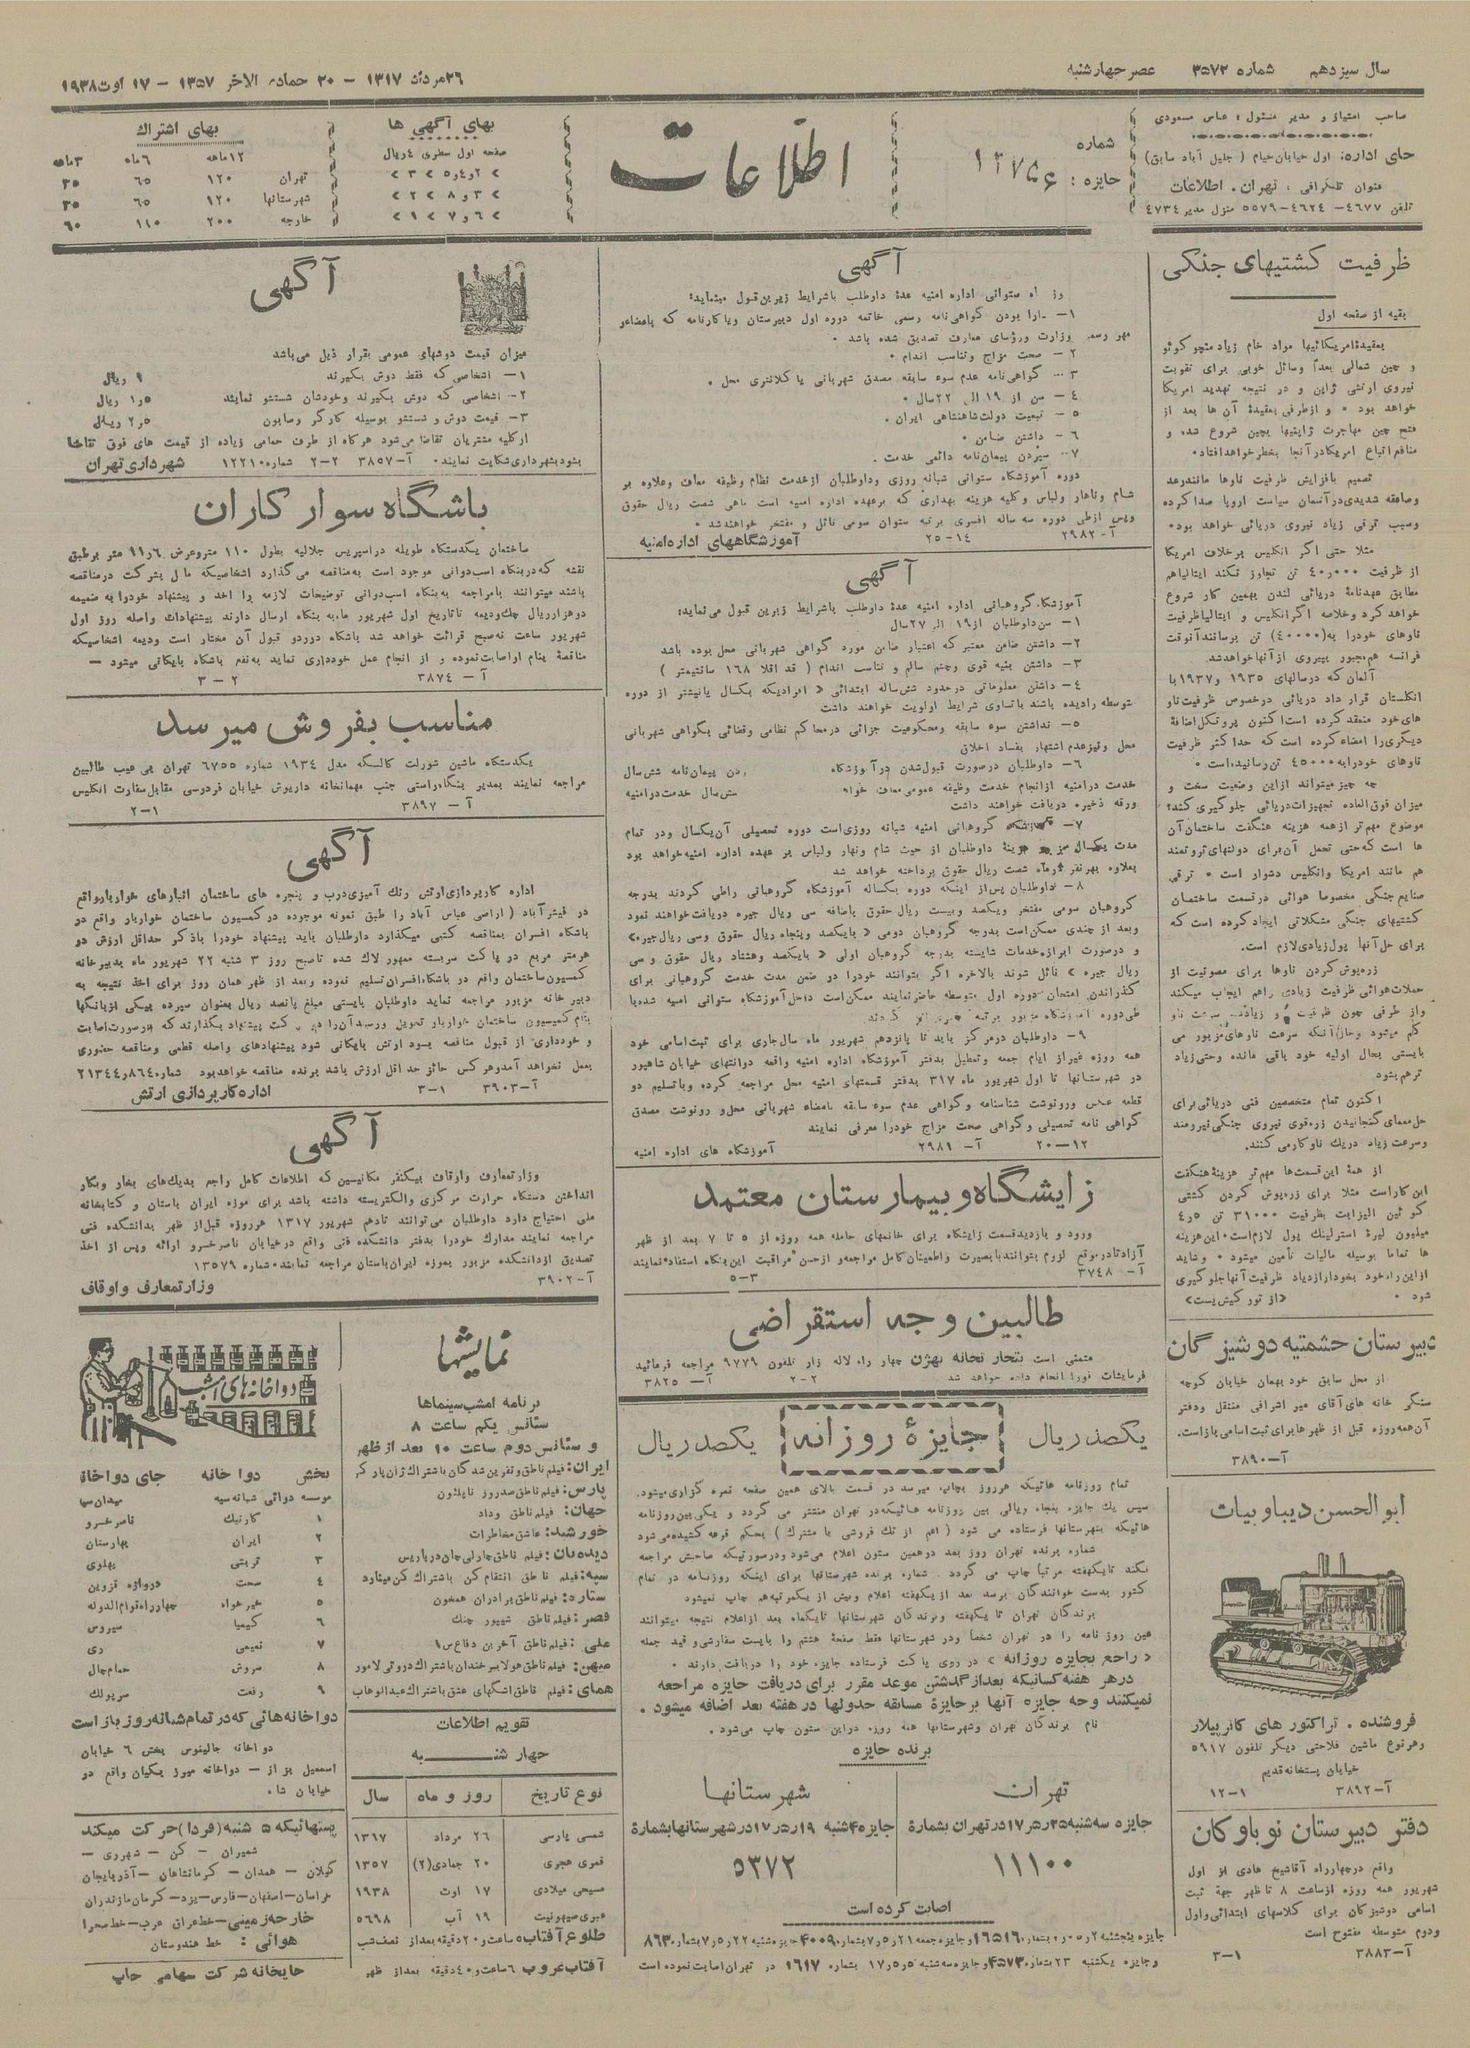 سال سیزدهم شماره ۳۵۷۲ عصر چهارشنبه
۲۶ مرداد ۱۳۱۷ – ۲۰ جمادی الاخر ۱۳۵۷ – ۱۷ اوت ۱۹۳۸
صاحب امتیاز و مدیر مسئول: عباس مسعودی
جای اداره: اول خیابان خیام (جلیل آباد سابق)
عنوان تلگرافی: تهران. اطلاعات
تلفن ۴۶۷۷ – ۴۶۲۴ – ۵۵۷۹ منزل مدیر ۴۷۳۴
شماره
جایزه: ۱۲۷۵۶
اطلاعات
بهای آگهی ها
صفحه اول سطری ۴ ریال
> ۲ و ۴ و ۵ > ۳ >
> ۳ و ۸ > ۲ >
> ۶ و ۷ > ۱ >
بهای اشتراك
۱۲ ماهه ۶ ماه ۳ ماهه
تهران ۱۲۰ ۶۵ ۳۵
شهرستانها ۱۲۰ ۶۵ ۳۵
خارجه ۲۰۰ ۱۱۰ ۶۰
ظرفیت کشتیهای جنگی
بقیه از صفحه اول
بعقیده امریکائیها مواد خام زیاد منچوکوئو
و چین شمالی بعداً وسائل خوبی برای تقویت
نیروی ارتشی ژاپن و در نتیجه تهدید امریکا
خواهد بود • و از طرفی بعقیدهٔ آن ها بعد از
فتح چین مهاجرت ژاپنیها بچین شروع شده و
منافع اتباع امریکا در آنجا بخطر خواهد افتاد•
تصمیم بافزایش ظرفیت ناوها مانند رعد
وصاعقه شدیدی در آسمان سیاست اروپا صدا کرده
وسبب ترقی زیاد نیروی دریائی خواهد بود•
مثلا حتی اگر انگلیس برخلاف امریکا
از ظرفیت ۴۰٫۰۰۰ تن تجاوز نکند ایتالیا هم
مطابق عهدنامهٔ دریائی لندن بهمین کار شروع
خواهد کرد وخلاصه اگر انگلیس و ایتالیا ظرفیت
ناوهای خود را به (۴۰۰۰۰) تن برسانند آنوقت
فرانسه هم مجبور بپیروی از آنها خواهد شد.
آلمان که در سالهای ۱۹۳۵ و ۱۹۳۷ با
انگلستان قرار داد دریائی در خصوص ظرفیت ناو
های خود منعقد کرده است اکنون پروتکل اضافهٔ
دیگری را امضاء کرده است که حداکثر ظرفیت
ناوهای خود را به ۴۵۰۰۰ تن رسانیده است •
چه چیز میتواند از این وضعیت سخت و
میزان فوق العاده تجهیزات دریائی جلوگیری کند؟
موضوع مهم تر از همه هزینه هنگفت ساختمان آن
ها است که حتی تحمل آن برای دولتهای ثروتمند
هم مانند امریکا وانگلیس دشوار است • ترقی
صنایع جنگی مخصوصا هوائی در قسمت ساختمان
کشتیهای جنگی مشکلاتی ایجاد کرده است که
برای حل آنها پول زیادی لازم است.
زره پوش کردن ناوها برای مصونیت از
حملات هوائی ظرفیت زیادی را هم ایجاب میکند
واز طرفی چون ظرفیت
کم میشود وحال آنکه سرعت ناوهای مزبور می
بایستی بحال اولیه خود باقی مانده وحتی زیاد
تر هم بشود
اکنون تمام متخصصین فنی دریائی برای
حل معمای گنجانیدن زره قوی نیروی جنگی نیرومند
وسرعت زیاد در یك ناو کار می کنند.
از همهٔ این قسمت ها مهم تر هزینهٔ هنگفت
این کار است مثلا برای زره پوش کردن کشتی
کوئین الیزابت بظرفیت ۳۱۰۰۰ تن ۴٫۵
میلیون لیرهٔ استرلینگ پول لازم است• این هزینه
ها تماما بوسیله مالیات تأمین میشود • وشاید
از این راه خود بخود از ازدیاد ظرفیت آنها جلوگیری
شود • «از تور کیش پست»
دبیرستان حشمتیه دوشیزگان
از محل سابق خود بهمان خیابان کوچه
سنگر خانه های آقای میر اشرافی منتقل ودفتر
آن همه روزه قبل از ظهر ها برای ثبت اسامی باز است.
آ– ۳۸۹۰
ابوالحسن دیبا و بیات
فروشنده . تراکتور های کاترپیلار
و هر نوع ماشین فلاحتی دیگر تلفون ۵۹۱۷
خیابان پستخانه قدیم
آ– ۳۸۹۲ ۱–۱۲
دفتر دبیرستان نوباوگان
واقع در چهارراه آقا شیخ هادی از اول
شهریور همه روزه از ساعت ۸ تا ظهر جهة ثبت
اسامی دوشیزگان برای کلاسهای ابتدائی و اول
ودوم متوسطه مفتوح است
آ– ۳۸۸۳ ۱–۳
آگهی
ستوانی اداره امنیه عدهٔ داوطلب باشرایط زیرین قبول مینماید:
۱– دارا بودن گواهی نامه رسمی خاتمه دوره اول دبیرستان ویا کارنامه که بامضاء و
مهر رسمی وزارت ورؤسای معارف تصدیق شده باشد •
۲ – صحت مزاج وتناسب اندام •
۳ – گواهی نامه عدم سوء سابقه مصدق شهربانی یا کلانتری محل .
۴ – سن از ۱۹ الی ۲۲ سال •
۵ – تبعیت دولت شاهنشاهی ایران .
۶ – داشتن ضامن •
۷ – سپردن پیمان نامه دائمی خدمت .
دوره آموزشگاه ستوانی شبانه روزی وداوطلبان از خدمت نظام وظیفه معاف وعلاوه بر
شام وناهار ولباس وکلیه هزینه بهداری که برعهده اداره امنیه است ماهی شصت ریال حقوق
وپس از طی دوره سه ساله افسری برتبه ستوان سومی نائل و مفتخر خواهند شد •
آ– ۲۹۸۲ ۱۴–۲۵ آموزشگاههای اداره امنیه
آگهی
آموزشگاه گروهبانی اداره امنیه عدهٔ داوطلب باشرایط زیرین قبول می نماید:
۱– سن داوطلبان از ۱۹ الی ۲۷ سال
۲– داشتن ضامن معتبر که اعتبار ضامن مورد گواهی شهربانی محل بوده باشد
۳– داشتن بنیه قوی وچشم سالم و تناسب اندام ( قد اقلا ۱۶۸ سانتیمتر )
۴– داشتن معلوماتی در حدود شش ساله ابتدائی « افرادیکه یکسال یا بیشتر از دوره
متوسطه را دیده باشند باتساوی شرایط اولویت خواهند داشت
۵– نداشتن سوء سابقه ومحکومیت جزائی در محاکم نظامی وقضائی بگواهی شهربانی
محل ونیز عدم اشتهار بفساد اخلاق
۶– داوطلبان در صورت قبول شدن در آموزشگاه پیمان نامه شش سال
خدمت در امنیه از انجام خدمت وظیفه عمومی معاف شش سال خدمت در امنیه
ورقه ذخیره دریافت خواهند داشت
۷– آموزشگاه گروهبانی امنیه شبانه روزی است دوره تحصیلی آن یکسال ودر تمام
مدت یکسال هزینهٔ داوطلبان از حیث شام ونهار ولباس بر عهده اداره امنیه خواهد بود
بعلاوه بهر نفر ماه شصت ریال حقوق پرداخته خواهد شد
۸– داوطلبان پس از اینکه دوره یکساله آموزشگاه گروهبانی را طی کردند بدرجه
گروهبان سومی مفتخر ویکصد وبیست ریال حقوق باضافه سی ریال جیره دریافت خواهند نمود
وبعد از چندی ممکن است بدرجه گروهبان دومی « بایکصد وپنجاه ریال حقوق وسی ریال جیره»
و درصورت ابراز خدمات شایسته بدرجه گروهبان اولی « بایکصد وهشتاد ریال حقوق و سی
ریال جیره » نائل شوند بالاخره اگر بتوانند خود را در ضمن مدت خدمت گروهبانی برای
گذراندن امتحان دوره اول متوسطه حاضر نمایند ممکن است داخل آموزشگاه ستوانی امنیه شده با
طی دوره آموزشگاه مزبور برتبه
۹– داوطلبان در مرکز باید تا پانزدهم شهریور ماه سال جاری برای ثبت اسامی خود
همه روزه غیر از ایام جمعه وتعطیل بدفتر آموزشگاه اداره امنیه واقعه در انتهای خیابان شاهپور
در شهرستانها تا اول شهریور ماه ۳۱۷ بدفتر قسمتهای امنیه محل مراجعه کرده وباتسلیم دو
قطعه عکس ورونوشت شناسنامه و گواهی عدم سوء سابقه بامضاء شهربانی محل و رونوشت مصدق
گواهی نامه تحصیلی وگواهی صحت مزاج خود را معرفی نمایند
۱۲–۲۰ آ– ۲۹۸۱ آموزشگاه های اداره امنیه
زایشگاه و بیمارستان معتمد
ورود و بازدید قسمت زایشگاه برای خانمهای حامله همه روزه از ۵ تا ۷ بعد از ظهر
آزاد تا در موقع لزوم بتوانند با بصیرت واطمینان کامل مراجعه و از حسن مراقبت این بنگاه استفاده نمایند
آ– ۳۷۴۸ ۳–۵
طالبین وجه استقراضی
متمنی است بتجار تخانه بهژن چهار راه لاله زار تلفون ۹۷۷۹ مراجعه فرمائید
فرمایشات فورا انجام داده خواهد شد ۲–۲ آ– ۳۸۲۵
یکصد ریال جایزهٔ روزانه یکصد ریال
تمام روزنامه هائیکه هر روز بچاپ میرسد در قسمت بالای همین صفحه نمره گزاری میشود.
سپس یك جایزه پنجاه ریالی بین روزنامه هائیکه در تهران منتشر می گردد و یکی بین روزنامه
هائیکه بشهرستانها فرستاده می شود (اعم از تك فروشی یا مشترك) بحکم قرعه کشیده می شود
شماره برنده تهران روز بعد در همین ستون اعلام می شود و در صورتیکه صاحبش مراجعه
نکند تا یکهفته مرتباً چاپ می گردد . شماره برنده شهرستانها برای اینکه روزنامه در تمام
کشور بدست خوانندگان برسد بعد از یکهفته اعلام وبیش از یکمرتبه هم چاپ نمیشود
برندگان تهران تا یکهفته وبرندگان شهرستانها تا یکماه بعد از اعلام نتیجه میتوانند
عین روزنامه را در تهران شخصاً ودر شهرستانها فقط صفحهٔ هشتم را با پست سفارشی و قید جمله
« راجع بجایزه روزانه » در روی پاکت فرستاده جایزه خود را دریافت دارند •
در هر هفته کسانیکه بعد از گذشتن موعد مقرر برای دریافت جایزه مراجعه
نمیکنند وجه جایزه آنها بر جایزهٔ مسابقه جدولها در هفته بعد اضافه میشود .
نام برندگان تهران وشهرستانها همه روزه در این ستون چاپ می شود.
برنده جایزه
تهران
جایزه سه شنبه ۲۵ر۵ر۱۷ در تهران بشمارهٔ
۱۱۱۰۰
شهرستانها
جایزه ۴ شنبه ۱۹ر۵ر۱۷ در شهرستانها بشمارهٔ
۵۳۷۲
اصابت کرده است
وجایزه یکشنبه ۲۳ بشماره ۴۵۷۳ وجایزه سه شنبه ۵ر۱۷ بشماره ۱۶۱۷ در تهران اصابت نموده است
آگهی
میزان قیمت دوشهای عمومی بقرار ذیل می باشد
۱– اشخاصی که فقط دوش بگیرند ۱ ریال
۲– اشخاصی که دوش بگیرند وخودشان شستشو نمایند ۱٫۵ ریال
۳– قیمت دوش و شستشو بوسیله کارگر وصابون ۲٫۵ ریال
از کلیه مشتریان تقاضا می شود هر گاه از طرف حمامی زیاده از قیمت های فوق تقاضا
بشود بشهرداری شکایت نمایند• آ– ۳۸۵۷ ۲–۲ شماره ۱۲۲۱۰ شهرداری تهران
باشگاه سوار کاران
ساختمان یکدستگاه طویله در اسپریس جلالیه بطول ۱۱۰ متر وعرض ۱۱٫۶ متر بر طبق
نقشه که در بنگاه اسب دوانی موجود است به مناقصه می گذارد اشخاصیکه مایل بشرکت در مناقصه
باشند میتوانند بامراجعه به بنگاه اسب دوانی توضیحات لازمه را اخذ و پیشنهاد خود را به ضمیمه
دوهزار ریال چك ودیعه تا تاریخ اول شهریور ماه به بنگاه ارسال دارند پیشنهادات واصله روز اول
شهریور ساعت نه صبح قرائت خواهد شد باشگاه در رد و قبول آن مختار است ودیعه اشخاصیکه
مناقصهٔ بنام او اصابت نموده و از انجام عمل خودداری نماید به نفع باشگاه بایگانی میشود –
آ – ۳۸۷۴ ۲ – ۳
مناسب بفروش میرسد
یکدستگاه ماشین شورلت کالسکه مدل ۱۹۳۴ شماره ۶۷۵۵ تهران بی عیب طالبین
مراجعه نمایند بمدیر بنگاه راستی جنب مهمانخانه داریوش خیابان فردوسی مقابل سفارت انگلیس
آ – ۳۸۹۷ ۱–۲
آگهی
اداره کارپردازی ارتش رنك آمیزی درب و پنجره های ساختمان انبارهای خواربار واقع
در قیشر آباد ( اراضی عباس آباد ) را طبق نمونه موجوده در کمسیون ساختمان خواربار واقع در
باشگاه افسران بمناقصه کتبی میگذارد داوطلبان باید پیشنهاد خود را باذکر حداقل ارزش در
هر متر مربع در پاکت سربسته ممهور لاك شده تا صبح روز ۳ شنبه ۲۲ شهریور ماه بدبیرخانه
کمسیون ساختمان واقع در باشگاه افسران تسلیم نموده وبعد از ظهر همان روز برای اخذ نتیجه به
دبیر خانه مزبور مراجعه نماید داوطلبان بایستی مبلغ پانصد ریال بعنوان سپرده بیکی از بانکها
بنام کمیسیون ساختمان خواربار تحویل ورسید آن را پاکت پیشنهاد بگذارند که در صورت اصابت
و خودداری از قبول مناقصه بسود ارتش بایگانی شود پیشنهادهای واصله قطعی ومناقصه حضوری
بعمل نخواهد آمد و هر کس حائز حد اقل ارزش باشد برنده مناقصه خواهد بود شماره ۲۱۳۴۴٫۸۶۴
آ– ۳۹۰۳ ۱–۳ اداره کارپردازی ارتش
آگهی
وزارت معارف واوقاف بیکنفر مکانیسین که اطلاعات کامل راجع بدیك های بخار وبکار
انداختن دستگاه حرارت مرکزی والکتریسته داشته باشد برای موزه ایران باستان و کتابخانه
ملی احتیاج دارد داوطلبان می توانند تا دهم شهریور ۱۳۱۷ هر روزه قبل از ظهر بدانشکده فنی
مراجعه نمایند مدارك خود را بدفتر دانشکده فنی واقع در خیابان ناصر خسرو ارائه وپس از اخذ
تصدیق از دانشکده مزبور بموزه ایران باستان مراجعه نمایند• شماره ۱۳۵۷۹
آ– ۳۹۰۲ وزارت معارف و اوقاف
نمایشها
برنامه امشب سینماها
سئانس یکم ساعت ۸
و سئانس دوم ساعت ۱۰ بعد از ظهر
ایران: فیلم ناطق و نفرین شدگان باشتراك ژان پارکر
پارس: فیلم ناطق صد روز ناپلئون
جهان: فیلم ناطق وداد
خورشید: عاشق مخاطرات
دیده بان: فیلم ناطق چارلی چان در پاریس
سپه: فیلم ناطق انتقام کن باشتراك کن مینارد
ستاره: فیلم ناطق برادران همخون
قصر: فیلم ناطق شیپور جنك
ملی: فیلم ناطق آخرین دفاع س۱
میهن: فیلم ناطق هولا بر خندان باشتراك دروتی لامور
همای: فیلم ناطق اشکهای عشق باشتراك عبدالوهاب
تقویم اطلاعات
چهار شنبه
نوع تاریخ روز و ماه سال
شمسی پارسی ۲۶ مرداد ۱۳۱۷
قمری هجری ۲۰ جمادی (۲) ۱۳۵۷
مسیحی میلادی ۱۷ اوت ۱۹۳۸
عبری صیهونیت ۱۹ آب ۵۶۹۸
طلوع آفتاب: ۵ ساعت و ۲۰ دقیقه بعد از نصف شب
آفتاب غروب ۶ ساعت و ۴۰ دقیقه بعد از ظهر
دواخانه های امشب
بخش دوا خانه جای دواخانه
موسسه دوائی شبانه سپه میدان سپه
۱ کارنیک ناصر خسرو
۲ ایران بهارستان
۳ تربتی پهلوی
۴ صحت دروازه قزوین
۵ خیرخواه چهارراه قوام الدوله
۶ کیمیا سیروس
۷ نعیمی ری
۸ سروش حمام چال
۹ رفعت سرپولك
دواخانه هائی که در تمام شبانه روز باز است
دواخانه جالینوس بخش ۶ خیابان
اسمعیل بزاز – دواخانه میرزا یکیان واقع در
خیابان شاه.
پستهائیکه ۵ شنبه (فردا) حرکت میکند
شمیران – کن – شهرری –
گیلان – همدان – کرمانشاهان – آذربایجان
خراسان – اصفهان – فارس – یزد – کرمان مازندران
خارجه زمینی – خط عراق عرب – خط صحرا
هوائی: خط هندوستان
چاپخانه شرکت سهامی چاپ